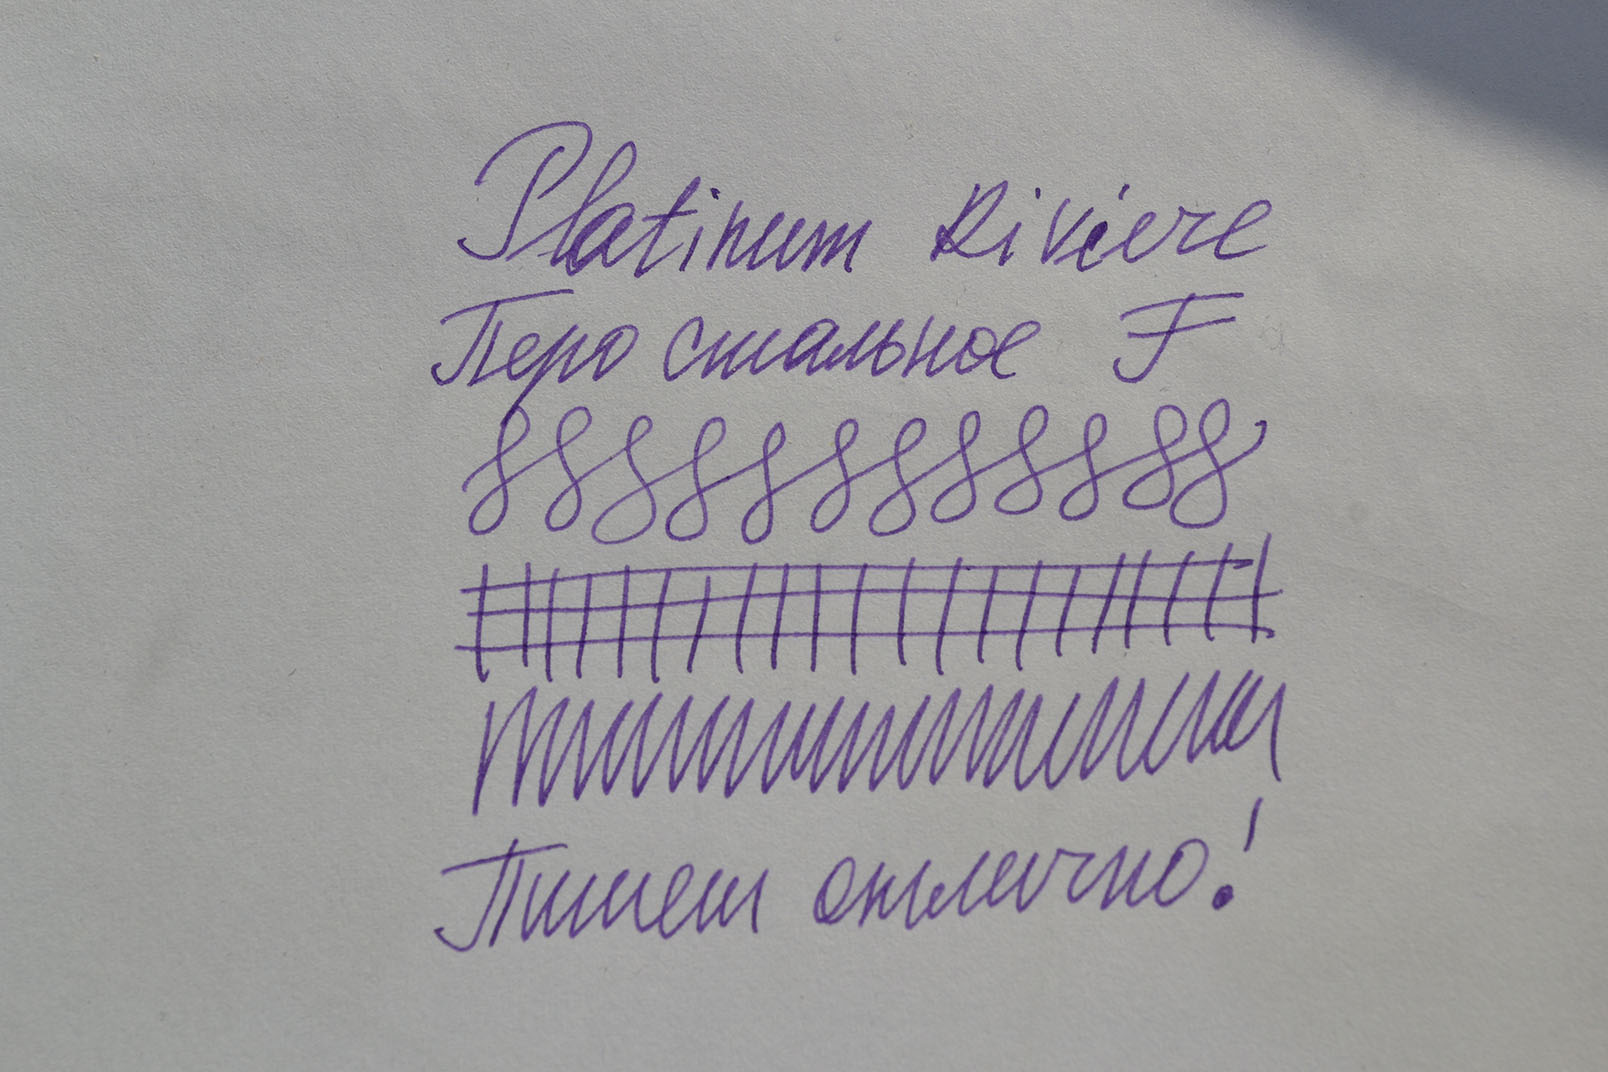 Platinum Riviere
Перо стальное F
Пишет отлично!